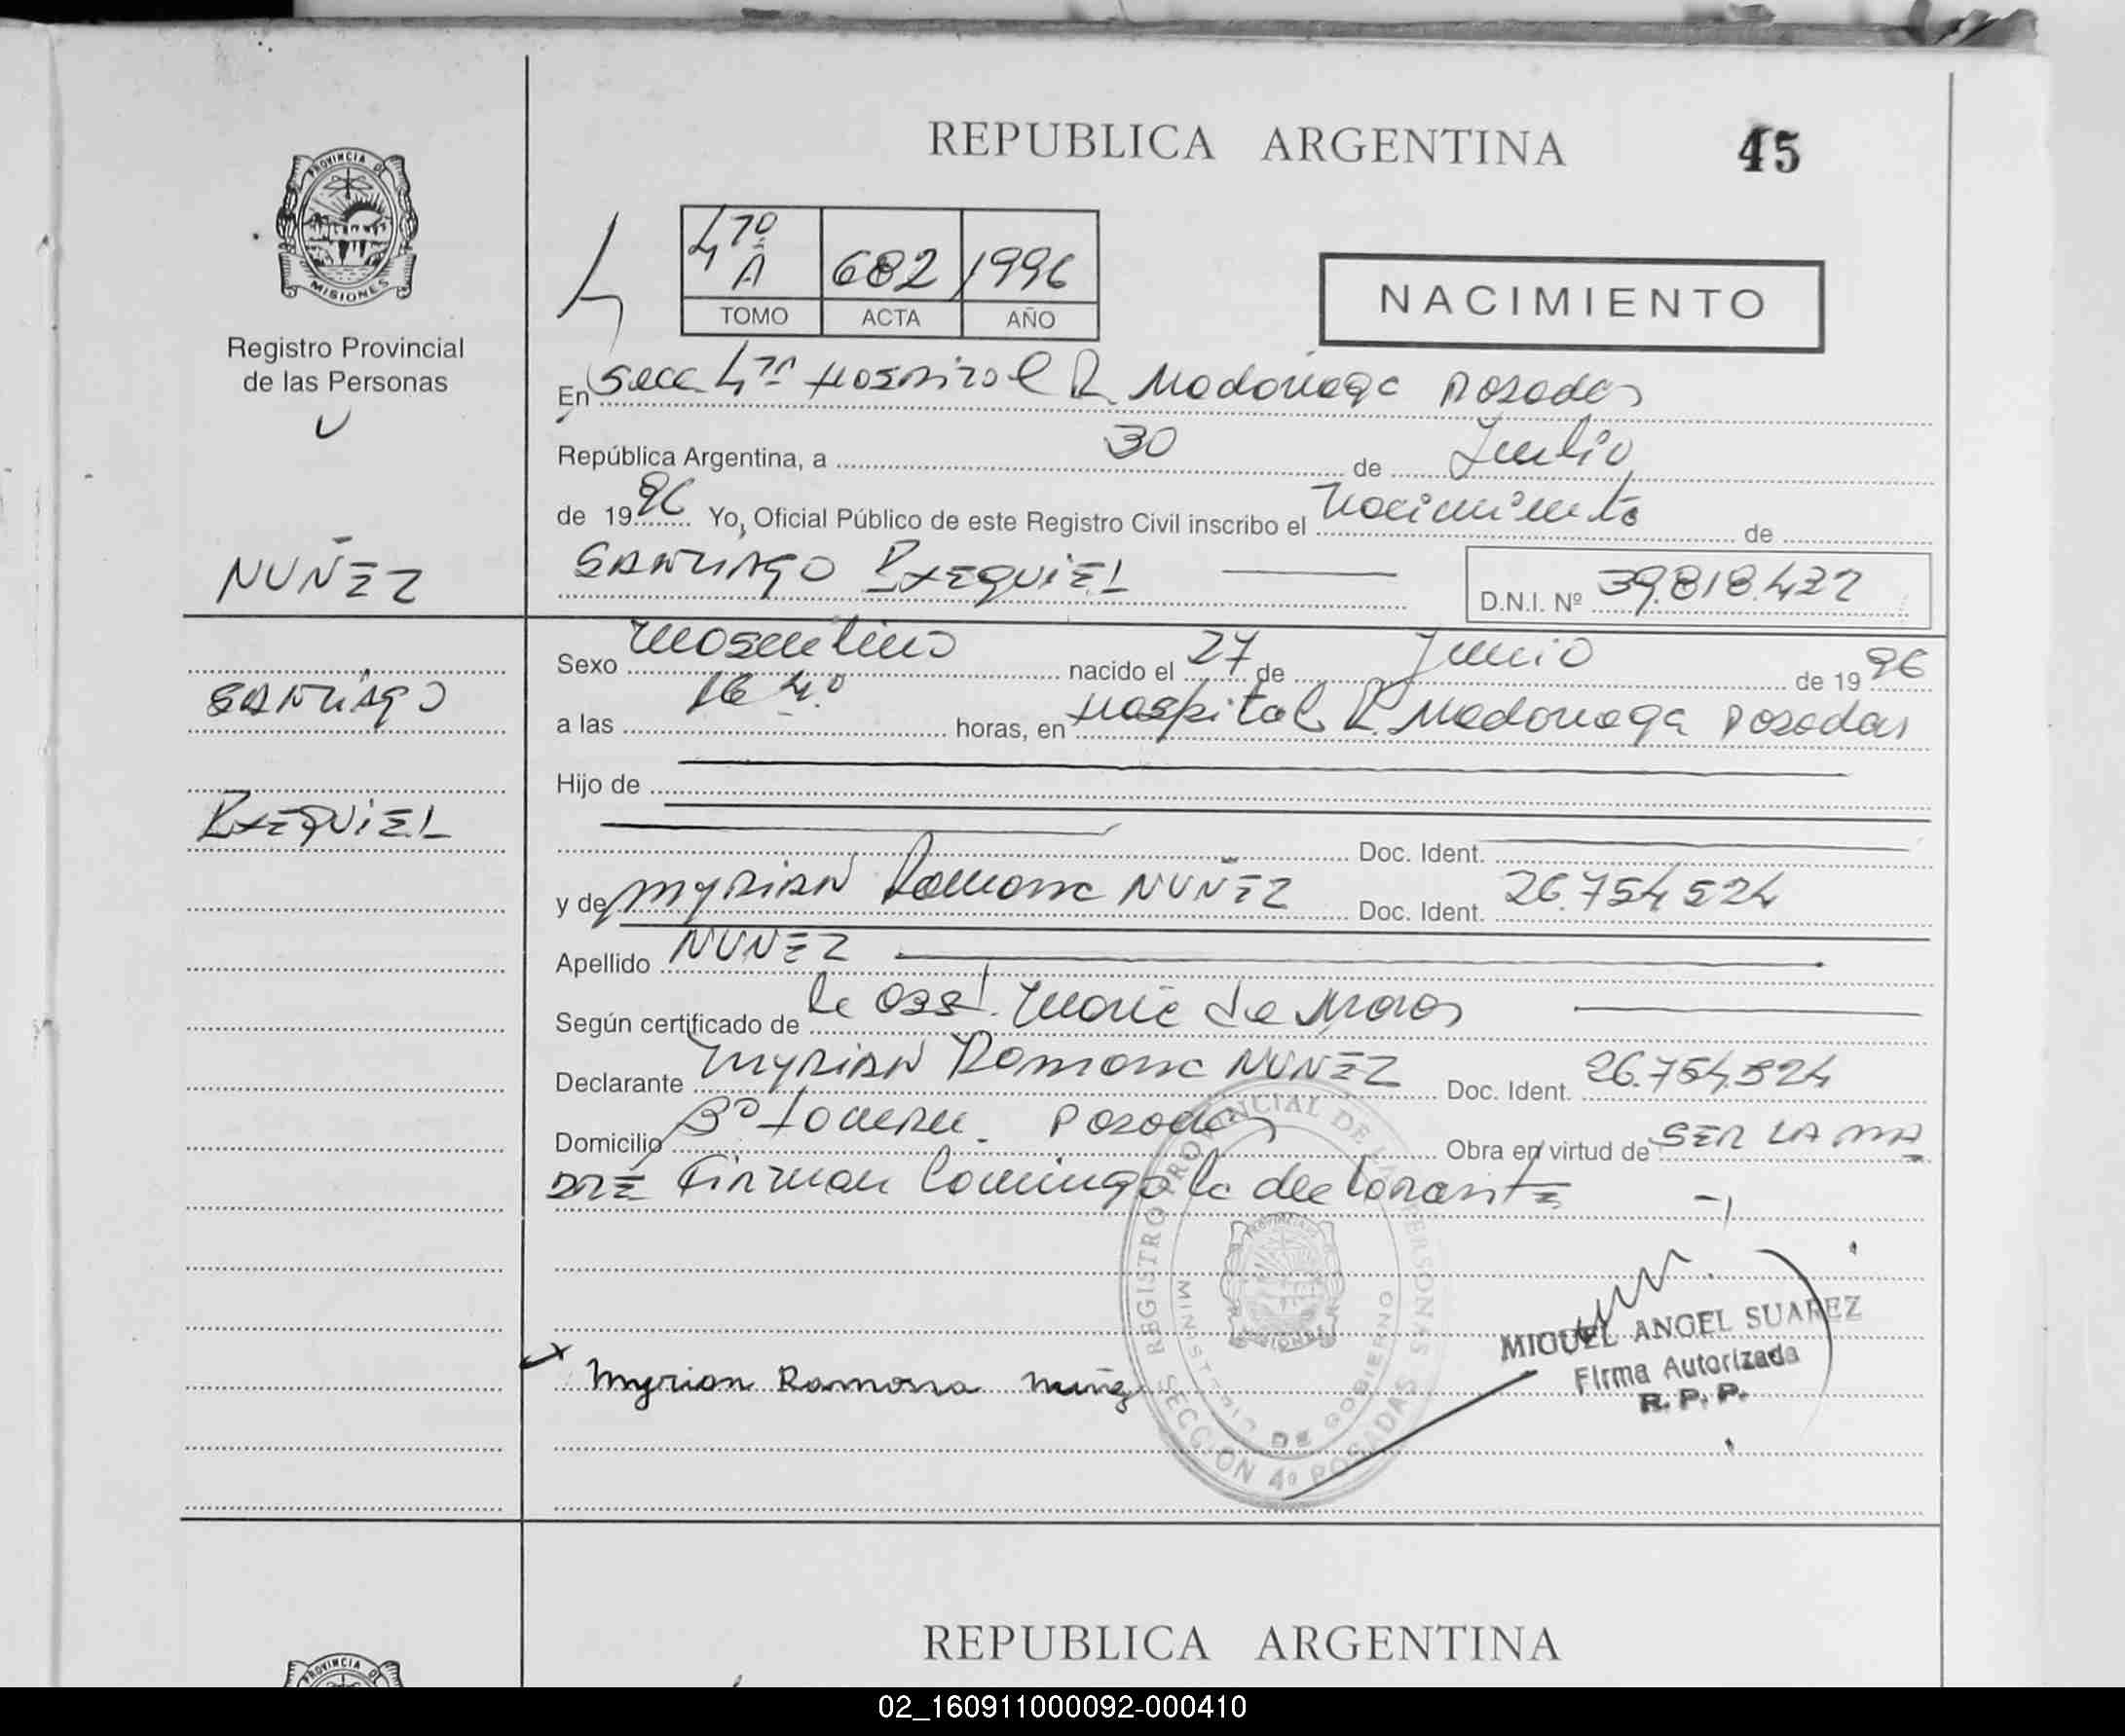 REPUBLICA ARGENTINA
45
PROVINCIA DE
MISIONES
Registro Provincial
de las Personas
4
4to A 682 1996
TOMO ACTA AÑO
NACIMIENTO
En Secc 4ta Hospital R. Madariaga Posadas
República Argentina, a 30 de Julio
de 1996 Yo, Oficial Público de este Registro Civil inscribo el nacimiento de
NUÑEZ
SANTIAGO EXEQUIEL
D.N.I. Nº 39.818.432
Sexo masculino nacido el 27 de Junio de 1996
SANTIAGO
a las 16 horas, en Hospital R. Madariaga Posadas
Hijo de
EXEQUIEL
Doc. Ident.
y de MYRIAN Ramona NUÑEZ Doc. Ident. 26.754.524
Apellido NUÑEZ
Según certificado de la obst. Maria de
Declarante MYRIAN Ramona NUÑEZ Doc. Ident. 26.754.524
Domicilio Bº Posadas Obra en virtud de SER LA MA
DRE Firman conmigo la declarante
REGISTRO PROVINCIAL DE LAS PERSONAS
MINISTERIO DE GOBIERNO
SECCION 4º POSADAS
MIGUEL ANGEL SUAREZ
Firma Autorizada
R. P. P.
Myrian Ramona Nuñez
REPUBLICA ARGENTINA
PROVINCIA D
02_160911000092-000410